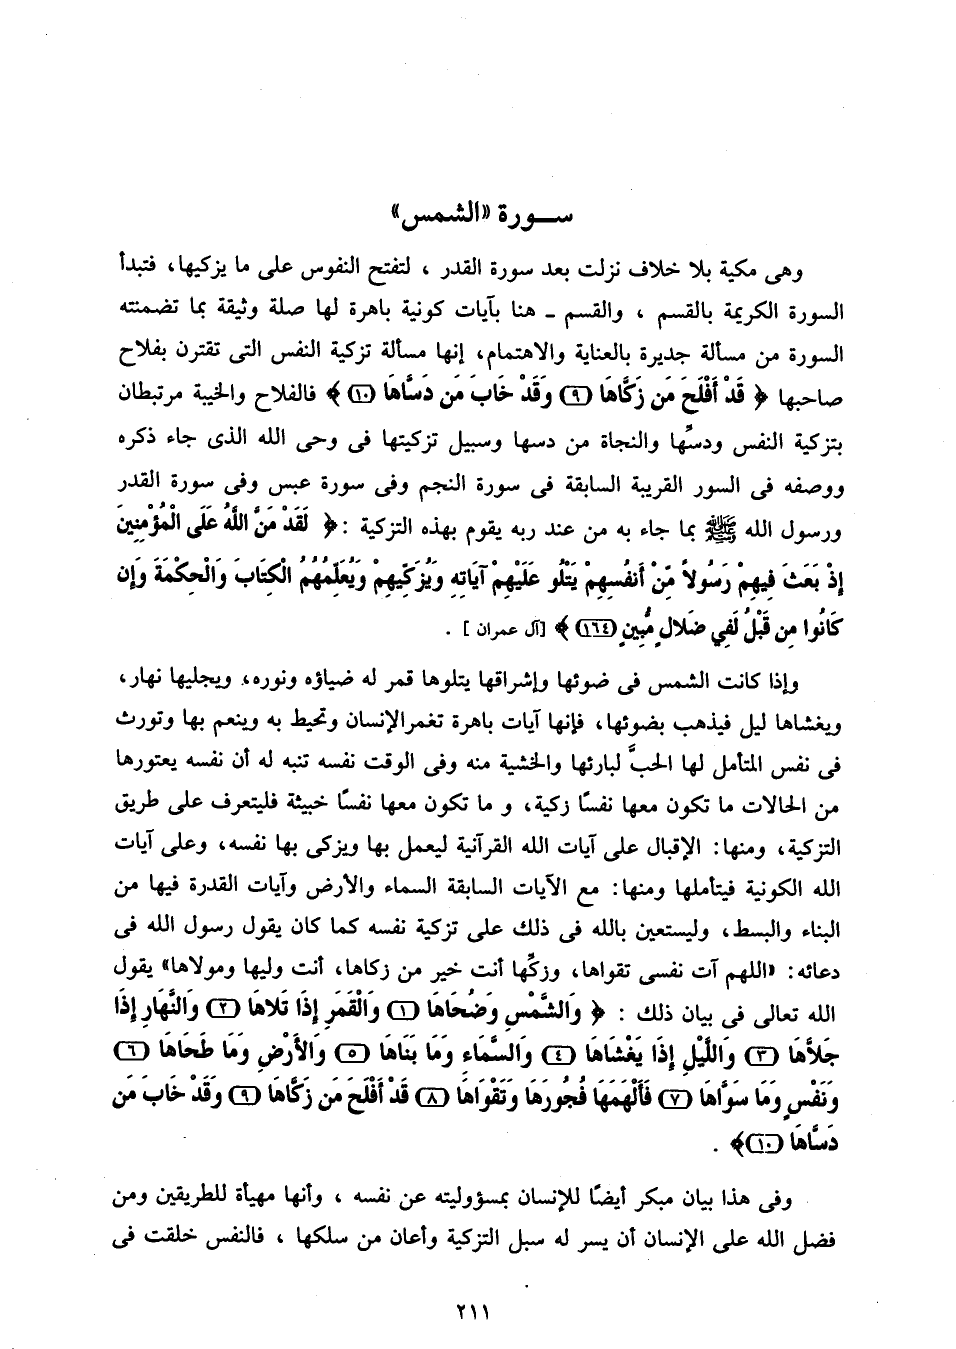 ســورة «الشمس»
وهى مكية بلا خلاف نزلت بعد سورة القدر ، لتفتح النفوس على ما يزكيها، فتبدأ
السورة الكريمة بالقسم ، والقسم ـ هنا بآيات كونية باهرة لها صلة وثيقة بما تضمنته
السورة من مسألة جديرة بالعناية والاهتمام، إنها مسألة تزكية النفس التى تقترن بفلاح
صاحبها ﴿ قَدْ أَفْلَحَ مَن زَكَّاهَا (٩) وَقَدْ خَابَ مَن دَسَّاهَا (١٠) ﴾ فالفلاح والخيبة مرتبطان
بتزكية النفس ودسِّها والنجاة من دسها وسبيل تزكيتها فى وحى الله الذى جاء ذكره
ووصفه فى السور القريبة السابقة فى سورة النجم وفى سورة عبس وفى سورة القدر
ورسول الله ﷺ بما جاء به من عند ربه يقوم بهذه التزكية :﴿ لَقَدْ مَنَّ اللَّهُ عَلَى الْمُؤْمِنِينَ
إِذْ بَعَثَ فِيهِمْ رَسُولاً مِّنْ أَنفُسِهِمْ يَتْلُو عَلَيْهِمْ آيَاتِهِ وَيُزَكِّيهِمْ وَيُعَلِّمُهُمُ الْكِتَابَ وَالْحِكْمَةَ وَإِن
كَانُوا مِن قَبْلُ لَفِي ضَلالٍ مُّبِينٍ (١٦٤) ﴾ [آل عمران ] .
وإذا كانت الشمس فى ضوئها وإشراقها يتلوها قمر له ضياؤه ونوره، ويجليها نهار،
ويغشاها ليل فيذهب بضوئها، فإنها آيات باهرة تغمرالإنسان وتحيط به وينعم بها وتورث
فى نفس المتأمل لها الحبَّ لبارئها والخشية منه وفى الوقت نفسه تنبه له أن نفسه يعتورها
من الحالات ما تكون معها نفسًا زكية، و ما تكون معها نفسًا خبيثة فليتعرف على طريق
التزكية، ومنها: الإقبال على آيات الله القرآنية ليعمل بها ويزكى بها نفسه، وعلى آيات
الله الكونية فيتأملها ومنها: مع الآيات السابقة السماء والأرض وآيات القدرة فيها من
البناء والبسط، وليستعين بالله فى ذلك على تزكية نفسه كما كان يقول رسول الله فى
دعائه: «اللهم آت نفسى تقواها، وزكِّها أنت خير من زكاها، أنت وليها ومولاها» يقول
الله تعالى فى بيان ذلك : ﴿ وَالشَّمْسِ وَضُحَاهَا (١) وَالْقَمَرِ إِذَا تَلاهَا (٢) وَالنَّهَارِ إِذَا
جَلاَّهَا (٣) وَاللَّيْلِ إِذَا يَغْشَاهَا (٤) وَالسَّمَاءِ وَمَا بَنَاهَا (٥) وَالأَرْضِ وَمَا طَحَاهَا (٦)
وَنَفْسٍ وَمَا سَوَّاهَا (٧) فَأَلْهَمَهَا فُجُورَهَا وَتَقْوَاهَا (٨) قَدْ أَفْلَحَ مَن زَكَّاهَا (٩) وَقَدْ خَابَ مَن
دَسَّاهَا (١٠)﴾ .
وفى هذا بيان مبكر أيضًا للإنسان بمسؤوليته عن نفسه ، وأنها مهيأة للطريقين ومن
فضل الله على الإنسان أن يسر له سبل التزكية وأعان من سلكها ، فالنفس خلقت فى
٢١١